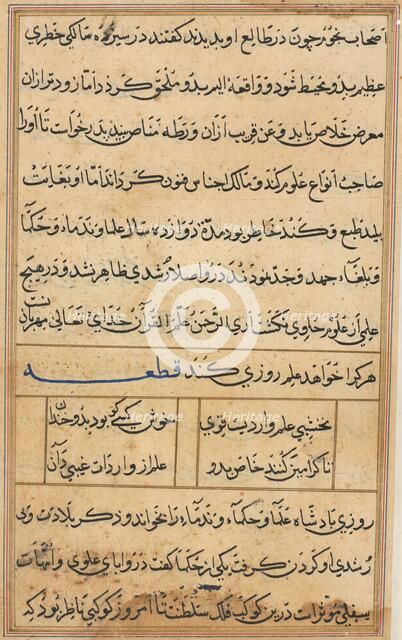 اصحاب نجوم چون در طالع او بدیدند کفتند در سیزده سالکی خطری
عظیم بدو محیط شود و واقعهٔ الیم بدو ملحق کردد اما زود تر ازان
معرض خلاص یابد و عن قریب ازان ورطه مناص بیند پدر خواست تا اورا
صاحب انواع علوم کند و مالک اجناس فنون کرداند اما او بغایت
بلید طبع و کند خاطر بود مدة دوازده سال علما و ندماء و حکما
و بلغاء جهد و جد نمودند در و اصلا رشدی ظاهر نشد و در هیچ
علمی از علوم حاوی نکشت اری الرحمن علم القرآن خدای تعالی
هر کرا خواهد علم روزی کند قطعه
نخشبی علم واردیست قوی
ناکرامین کنند خاص بدو
علم از واردات غیبی دان
روزی پادشاه علما و حکماء و ندماء را بخواند و ذکر بلادت وبی
رشدی او کردن کرفت یکی از حکما کفت در زوایای علوی و امهات
سفلی موثرات درین کوکب فلک سلطنت تا امروز کوکبی ناظر بود که
Heritage
Heritage
Heritage
Heritage